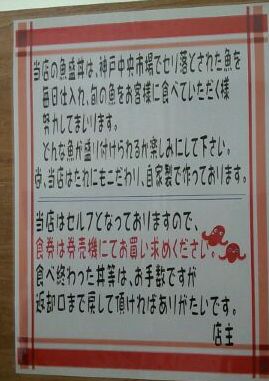 当店の魚盛丼は、神戸中央市場でセリ落とされた魚を
毎日仕入れ、旬の魚をお客様に食べていただく様
努力してまいります。
どんな魚が盛り付けられるか楽しみにして下さい。
尚、当店はたれにもこだわり、自家製で作っております。
当店はセルフとなっておりますので、
食券は券売機にてお買い求めください。
食べ終わった丼等は、お手数ですが
返却口まで戻して頂ければありがたいです。
店主